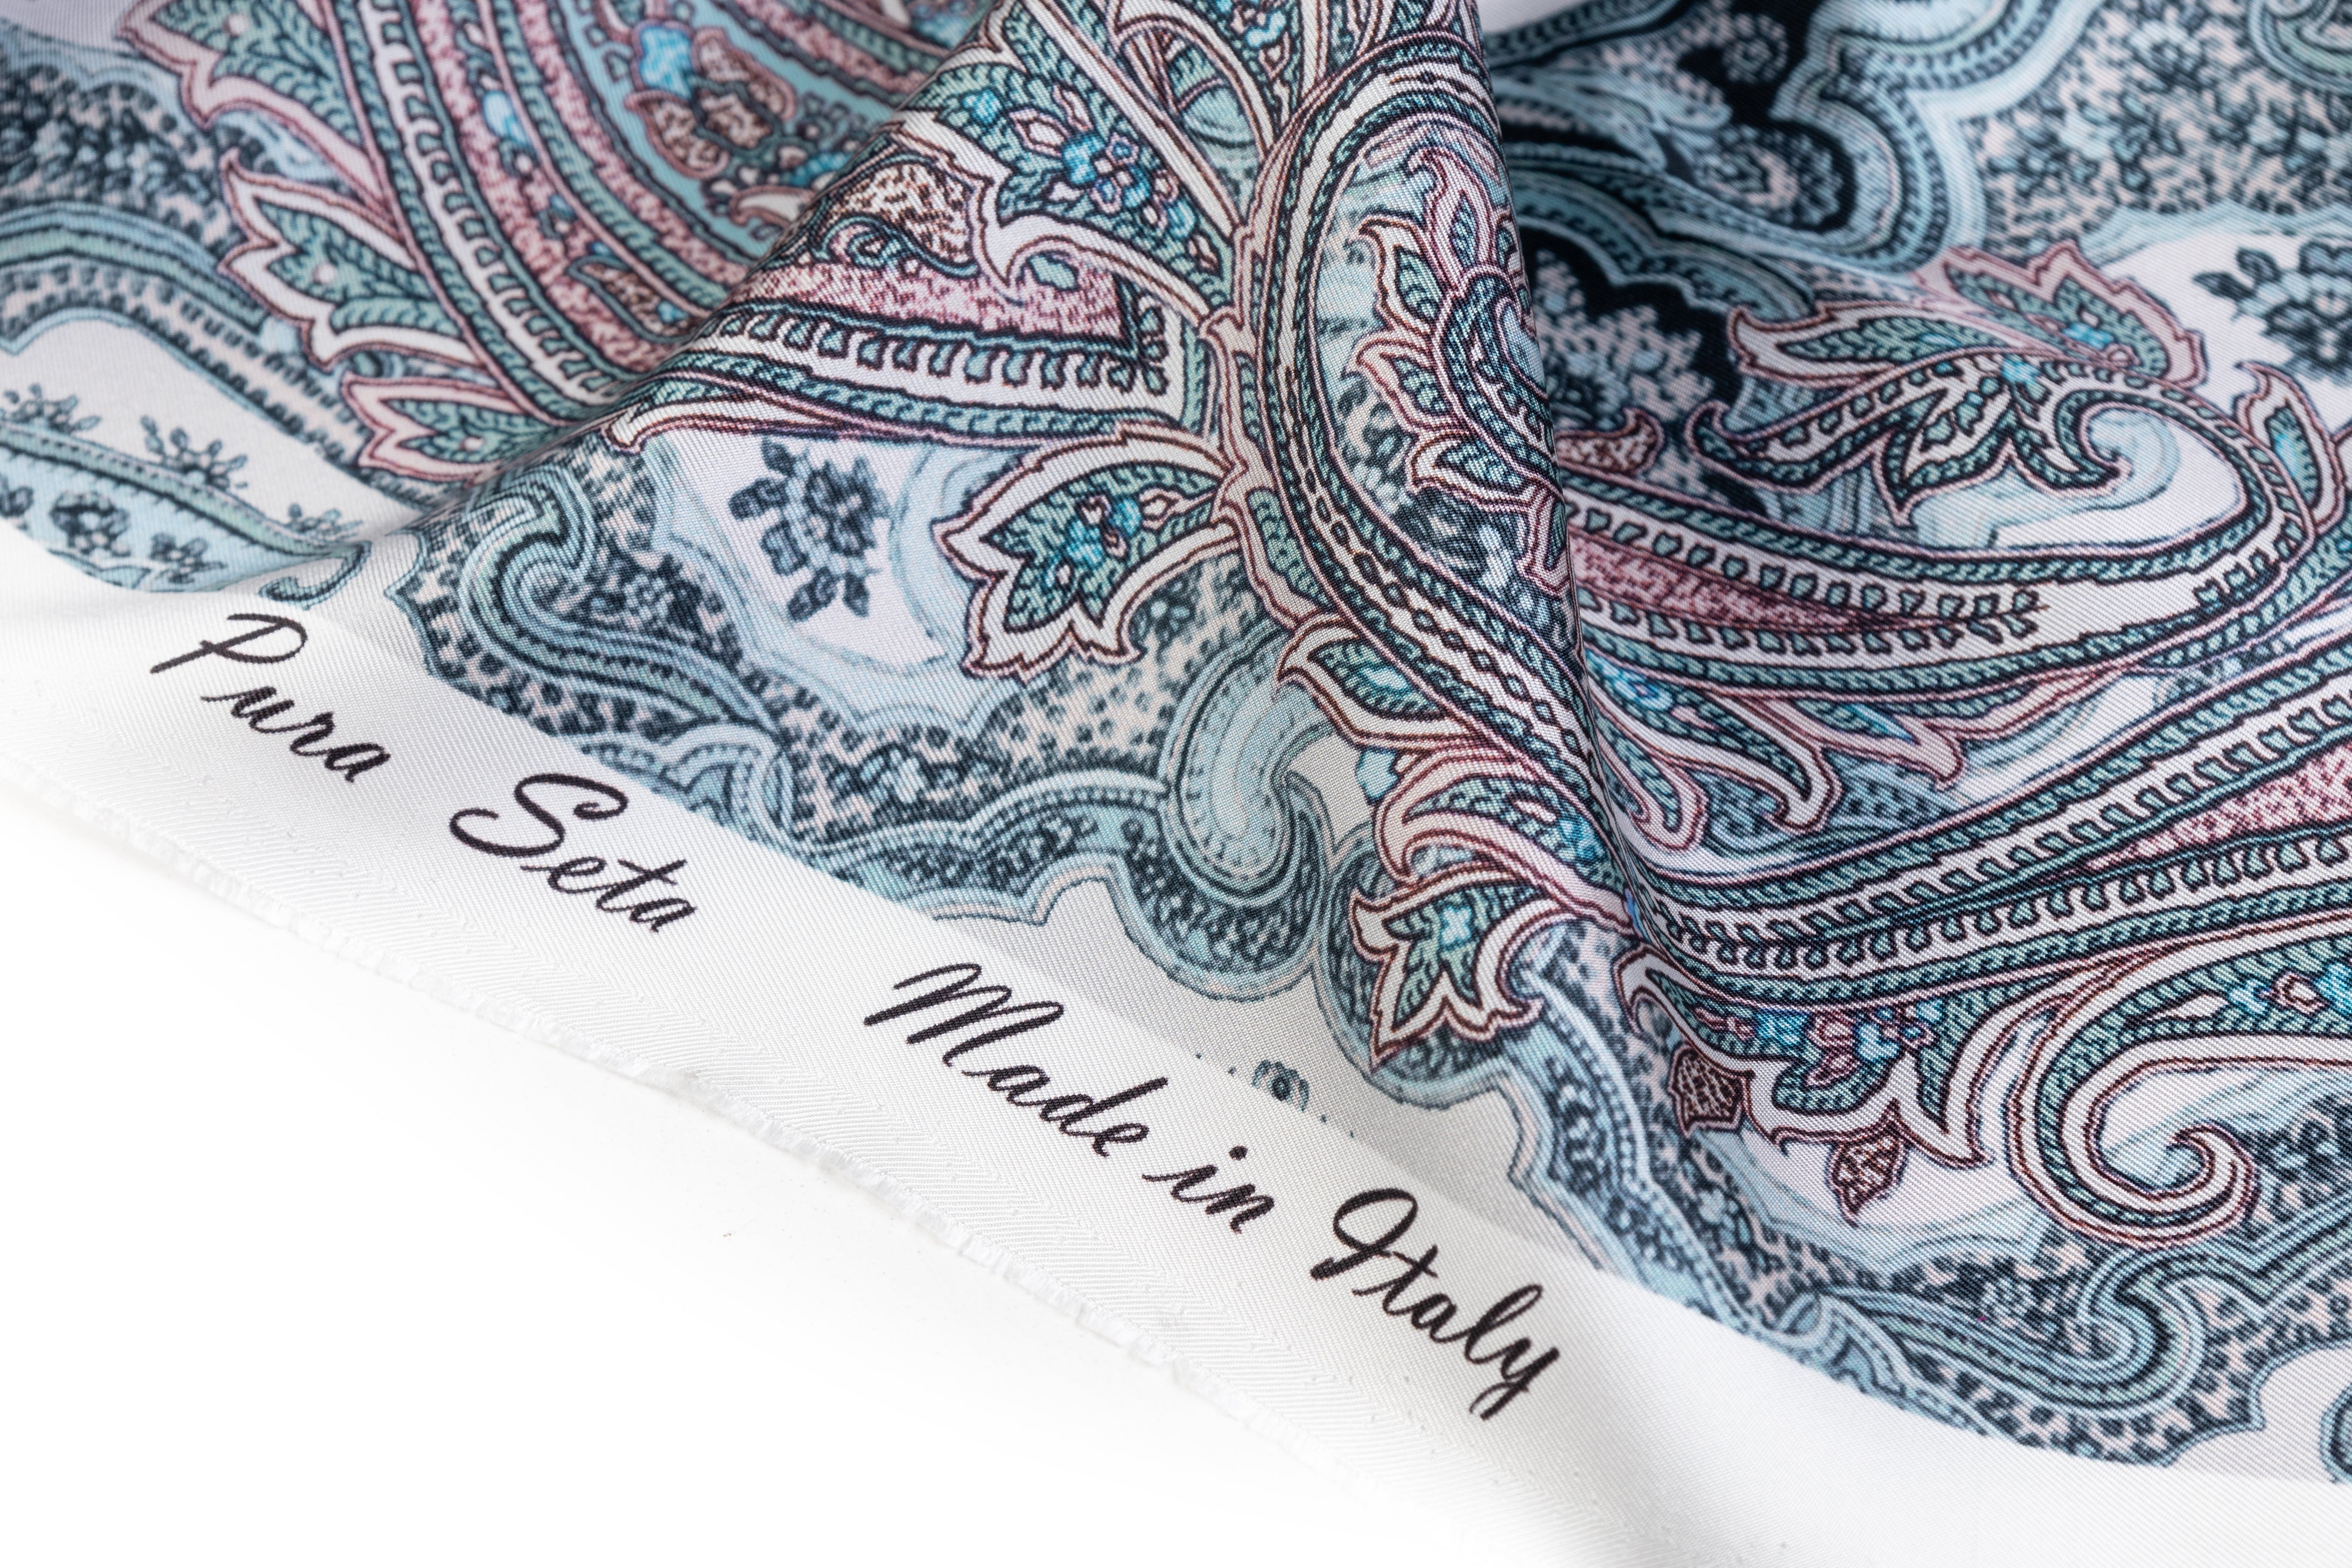 Pura Seta Made in Italy